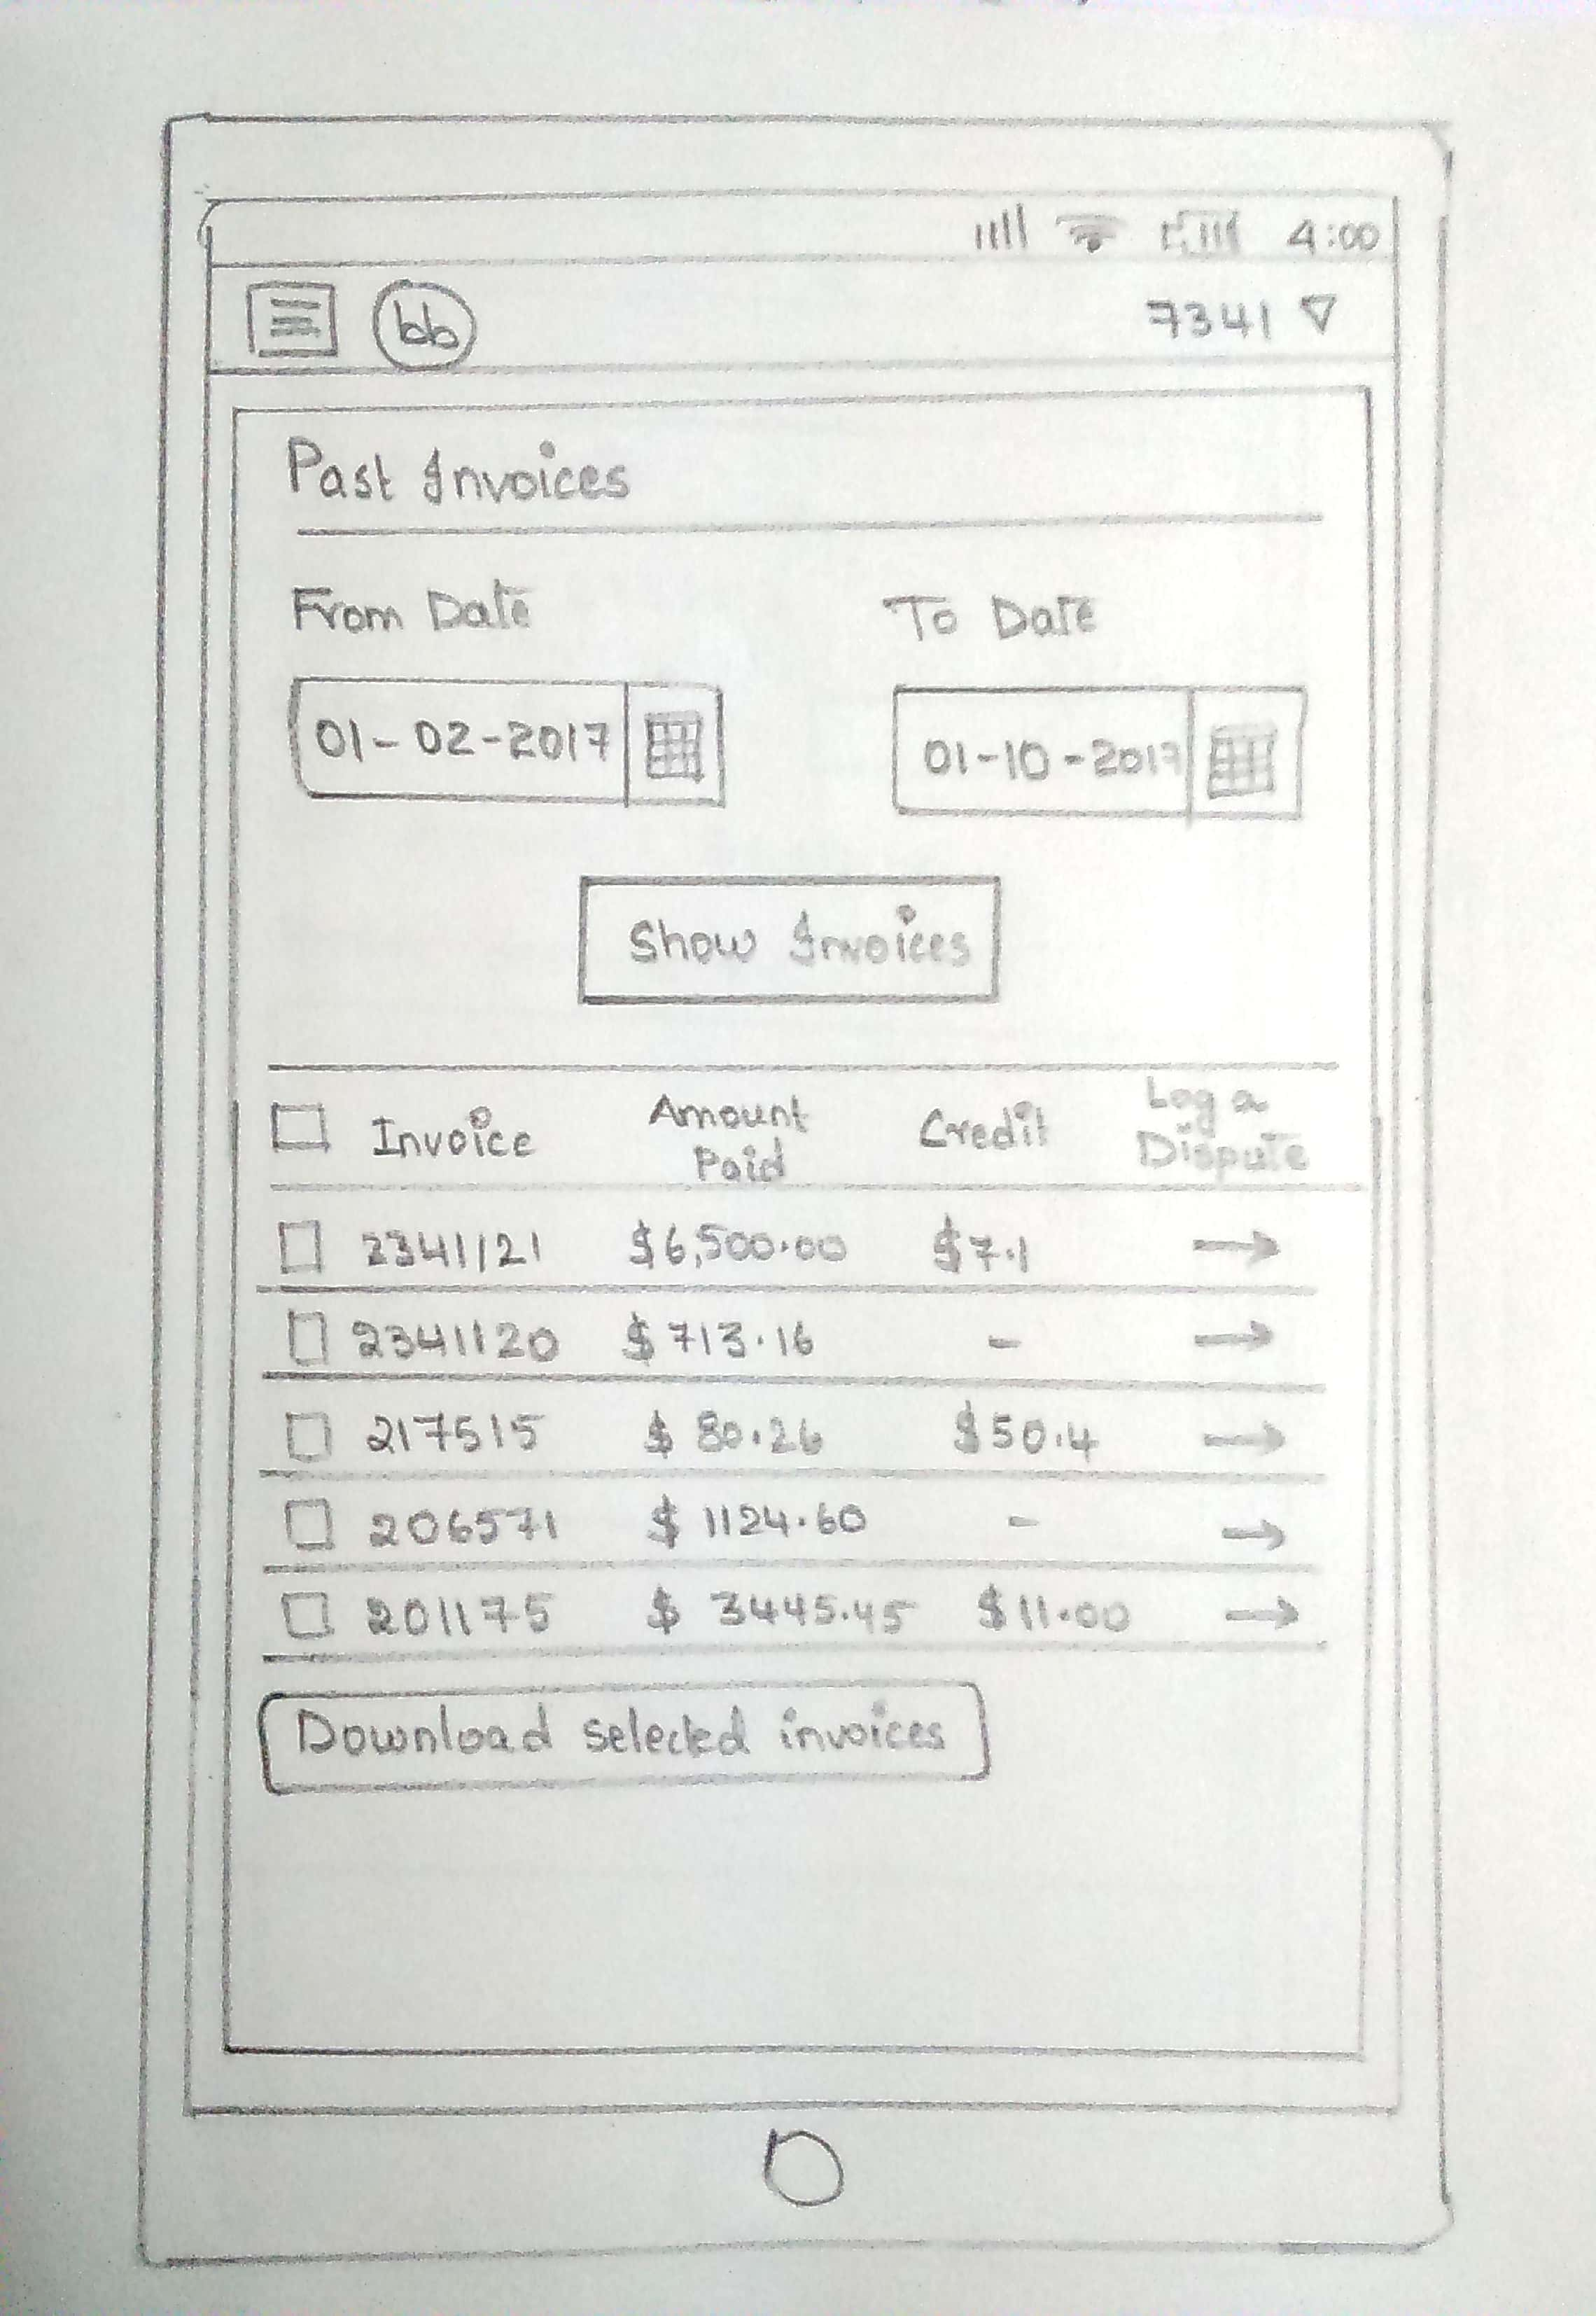 4:00
bb 7341
Past Invoices
From Date To Date
01-02-2017 01-10-2017
Show Invoices
Invoice Amount Paid Credit Log a Dispute
2341121 $6,500.00 $7.1 →
2341120 $713.16 - →
217515 $ 80.26 $50.4 →
206571 $ 1124.60 - →
201175 $ 3445.45 $11.00 →
Download selected invoices